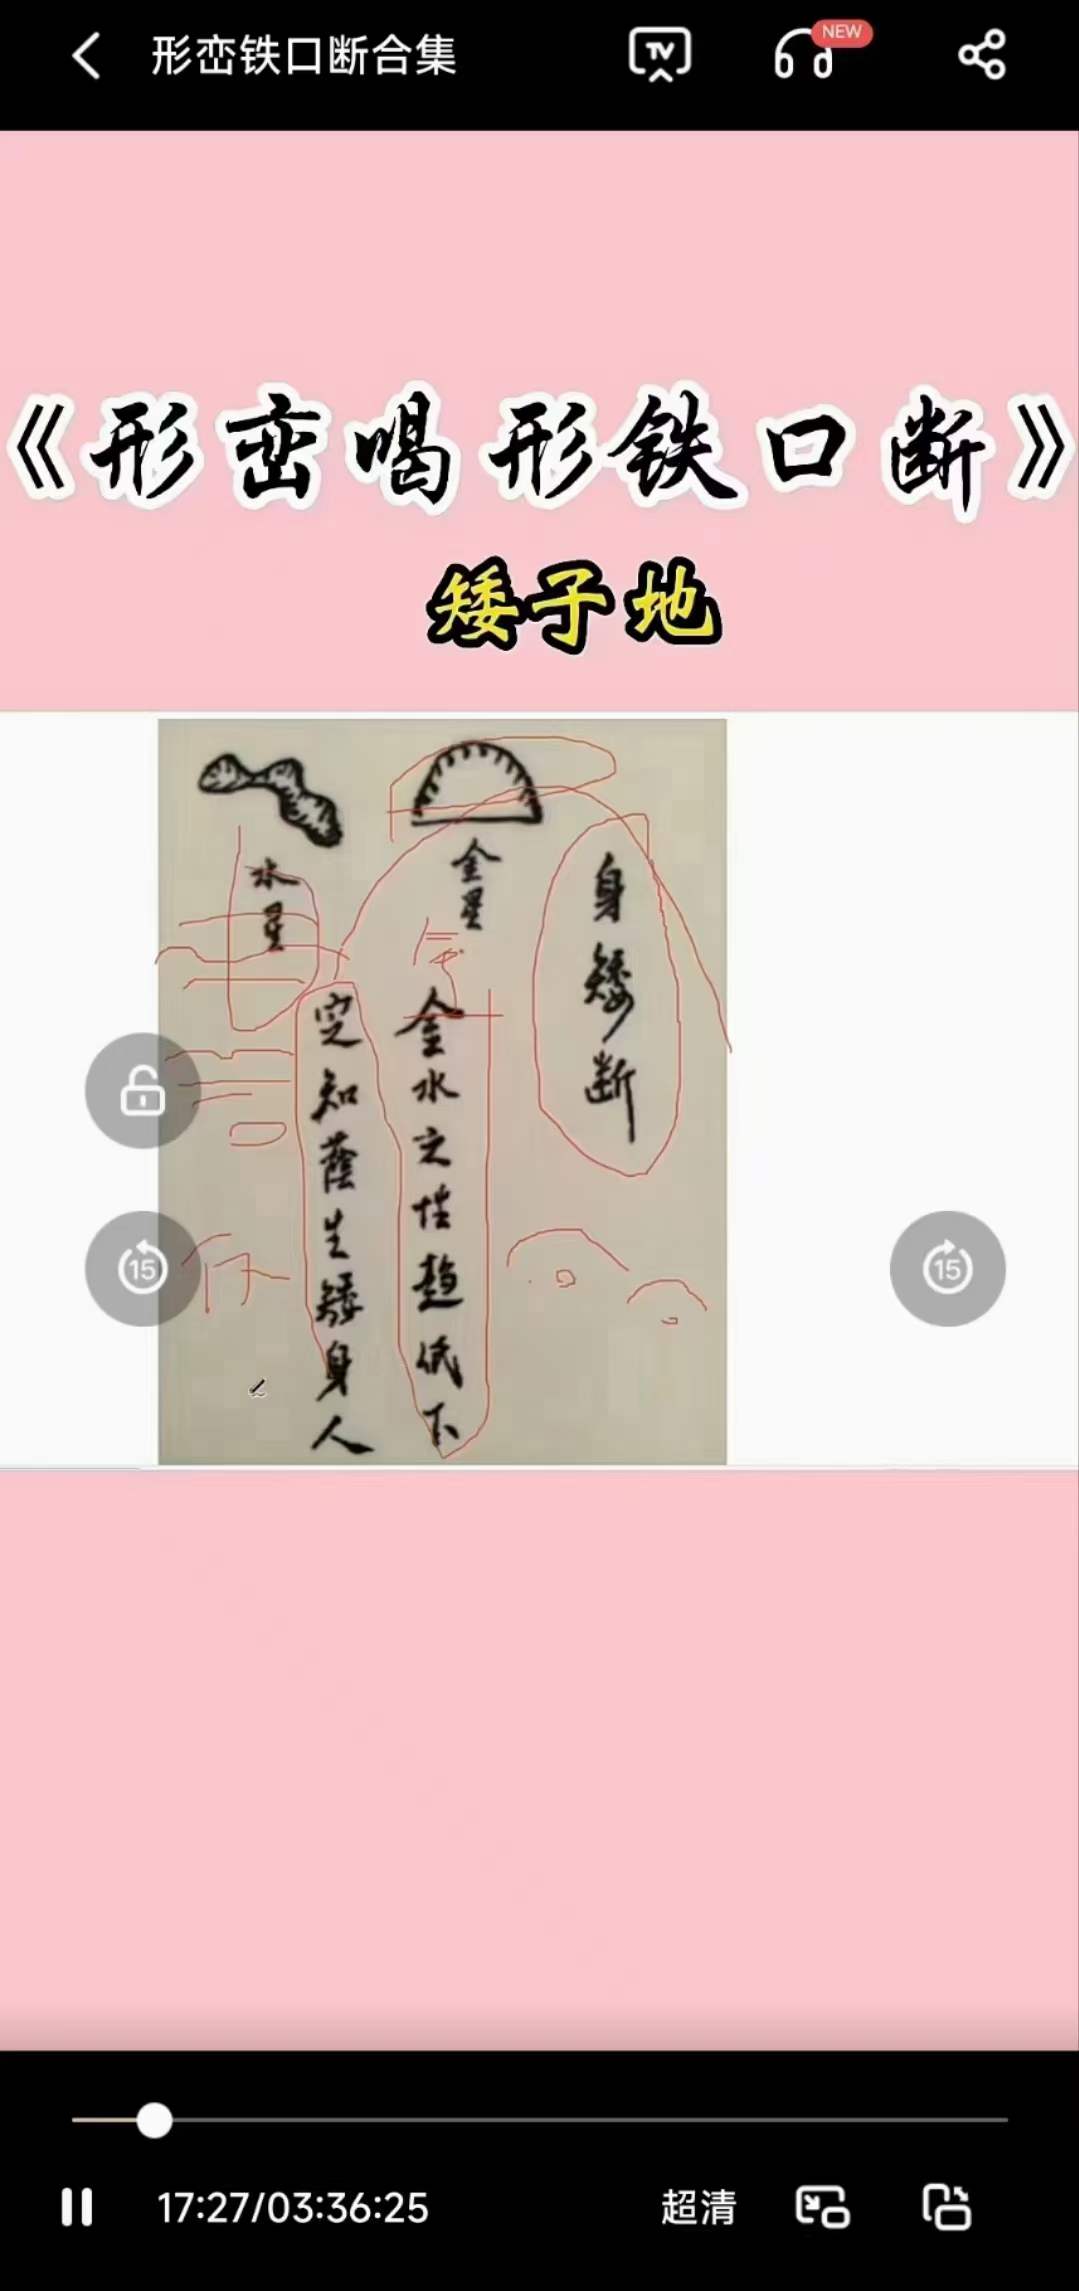 形峦铁口断合集
TV
NEW
《形峦喝形铁口断》
矮子地
身矮断
金星
金水之性趋低下
水星
定知荫生矮身人
15
15
17:27/03:36:25
超清